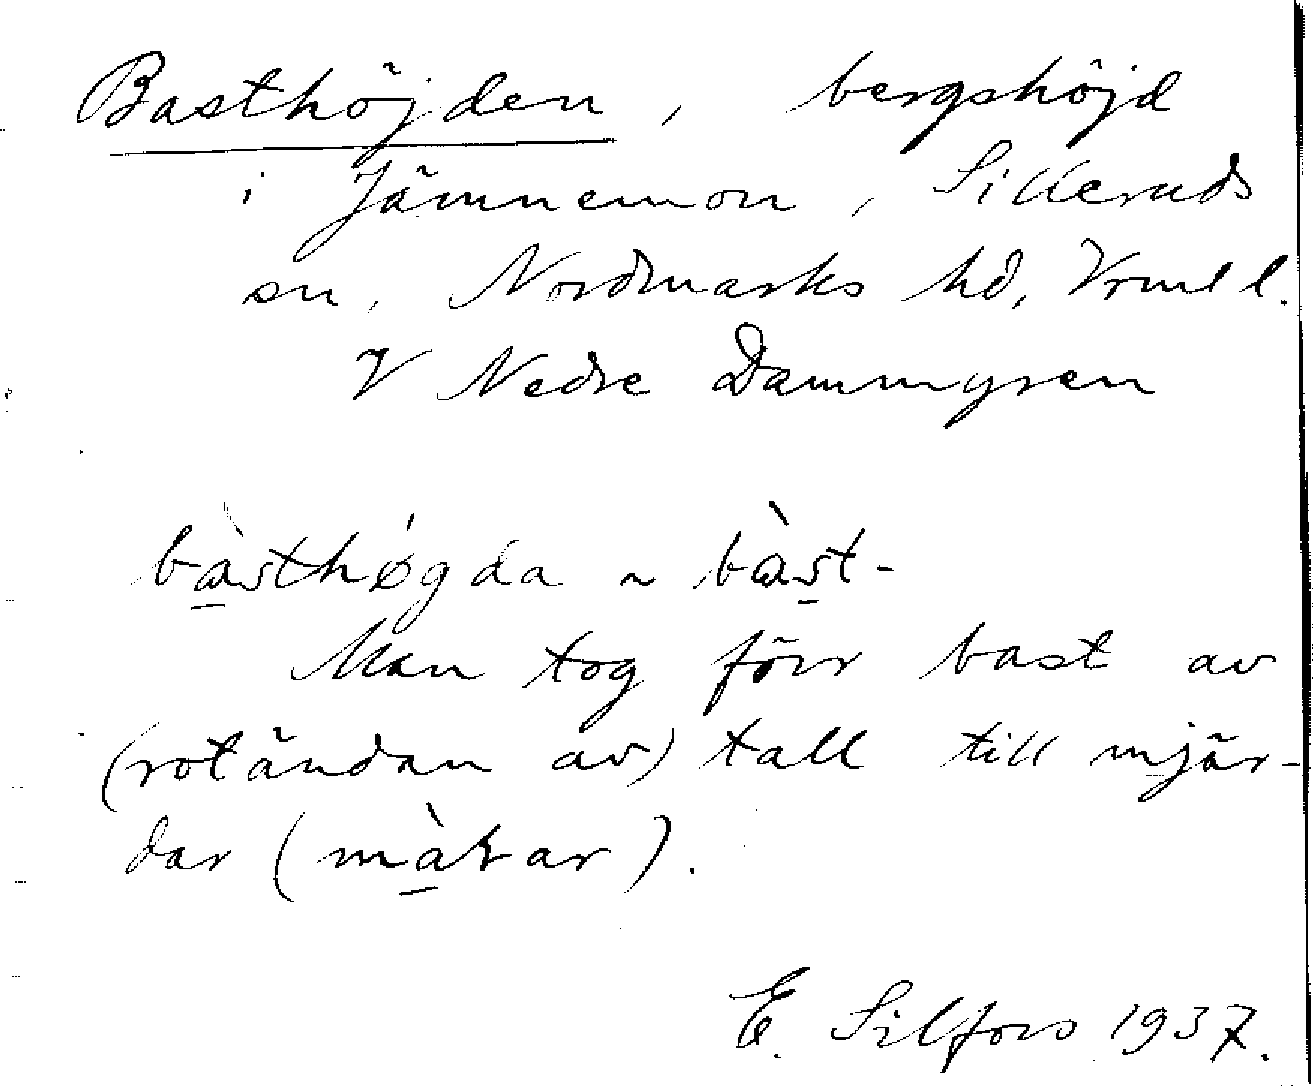 Basthöjden, bergshöjd
i Jämnemon, Silleruds
sn, Nordmarks hd, Vrml l.
V Nedre Dammyren
bàsthøgda ~ bàst-
Man tog förr bast av
(rotändan av) tall till mjär-
dar (màrar).
E. Silfors 1937.